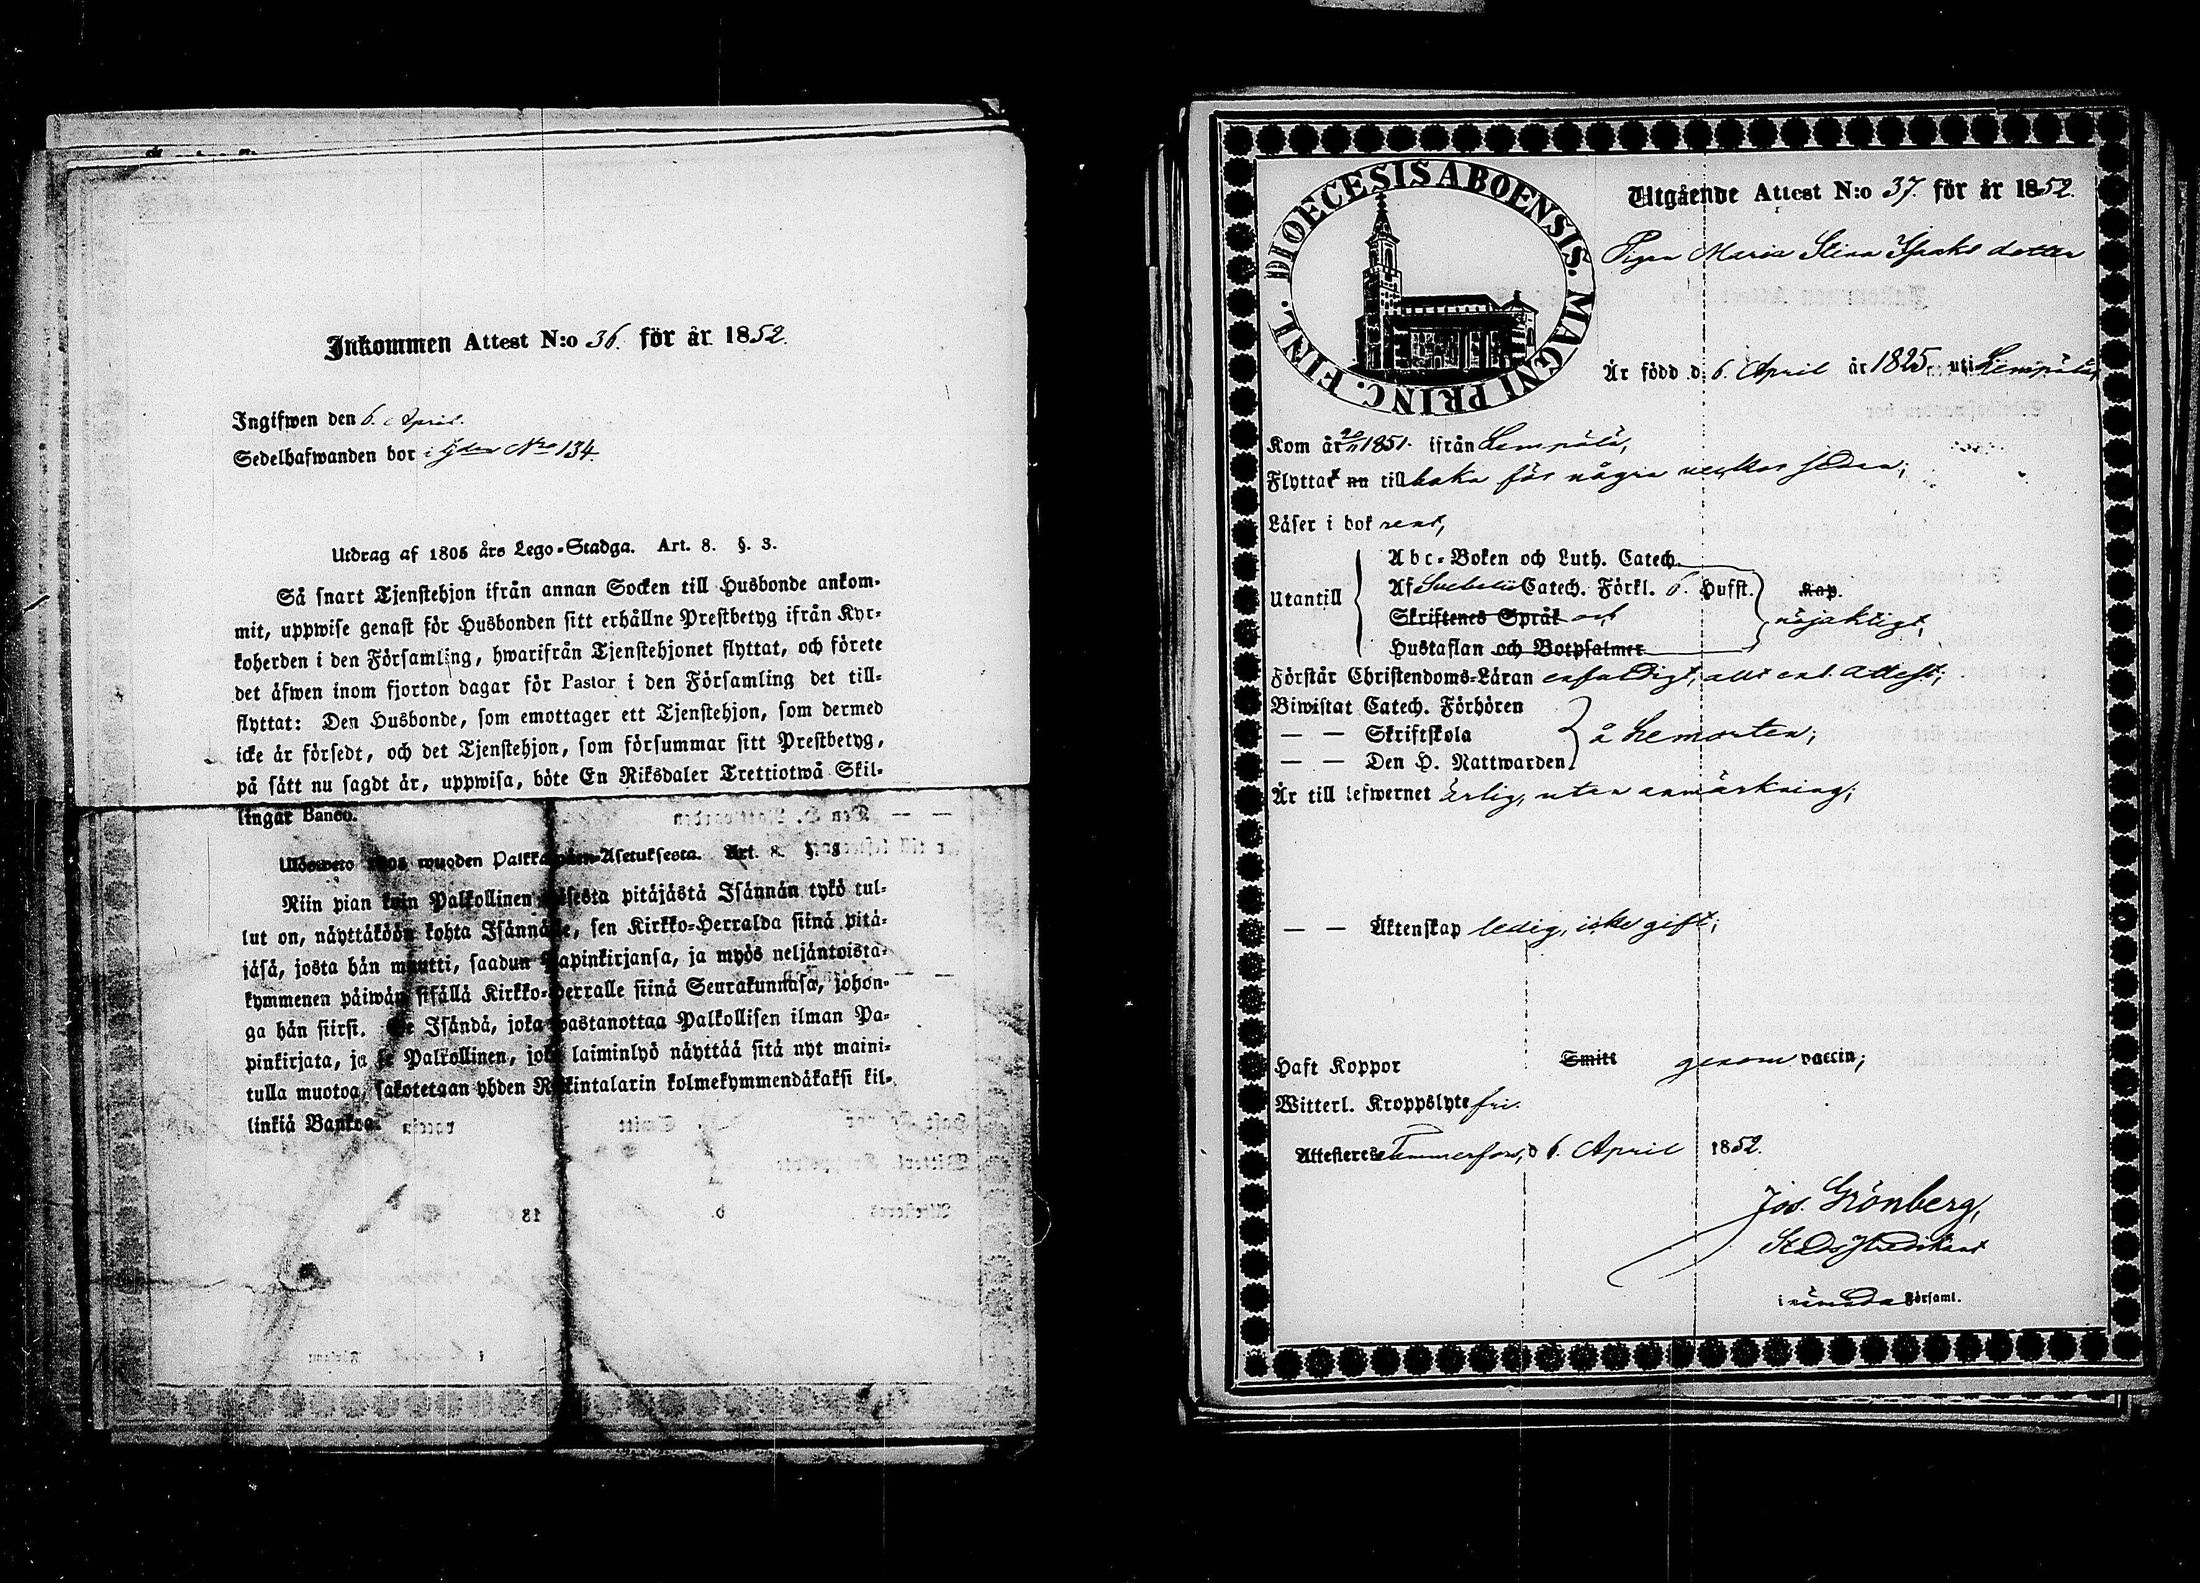 Inkommen Attest N:o 36. för år 1852.
Ingifwen den 6. April.
Sedelhafwanden bor i Gden Nro 134.
Utdrag af 1805 års Lego-Stadga. Art. 8. §. 3.
Så snart Tjenstehjon ifrån annan Socken till Husbonde ankom-
mit, uppwise genast för Husbonden sitt erhållne Prestbetyg ifrån Kyr-
koherden i den Församling, hwarifrån Tjenstehjonet flyttat, och förete
det äfwen inom fjorton dagar för Pastor i den Församling det till-
flyttat: Den Husbonde, som emottager ett Tjenstehjon, som dermed
icke är försedt, och det Tjenstehjon, som försummar sitt Prestbetyg,
på sätt nu sagdt är, uppwisa, böte En Riksdaler Trettiotwå Skil-
lingar Banco.
Ulosweto 1805 wuoden Palkka Asetuksesta. Art. 8. §. 3
Niin pian kuin Palkollinen toisesta pitäjästä Isännän tykö tul-
lut on, näyttäköön kohta Isännälle, sen Kirkko-Herralda siinä pitä-
jäsä, josta hän muutti, saadun Papinkirjansa, ja myös neljäntoista-
kymmenen päiwän sisällä Kirkko-Herralle siinä Seurakunnasa, johon-
ga hän siirsi. Se Isändä, joka wastanottaa Palkollisen ilman Pa-
pinkirjata, ja se Palkollinen, joka laiminlyö näyttää sitä nyt maini-
tulla muotoa, sakotetaan yhden Riikintalarin kolmekymmendäkaksi kil-
linkiä Bankoa.
DIOECESIS ABOENSIS. MAGNI PRINC. FINL.
Utgående Attest N:o 37. för år 1852.
Pigan Maria Stina Isaksdotter
Är född d. 6. April år 1825. uti Lempälä,
Kom år 1851. ifrån Lempälä,
Flyttat nu tillbaka för några veckor sedan;
Läser i bok rent,
Utantill
Abc-Boken och Luth. Catech.
Af Svebelii Catech. Förkl. 6. Hufst. Kap.
Skriftenes Språk och nöjaktigt,
Hustaflan och Botpsalmer
Förstår Christendoms-Läran enfaldigt, allt enl. Attest;
Biwistat Catech. Förhören
— — Skriftskola å hemorten;
— — Den H. Nattwarden
Är till lefwernet ärlig, utan anmärkning;
— — Äktenskap ledig, icke gift;
Haft Koppor Smitt genom vaccin;
Witterl. Kroppslyte fri.
Attesteres Tammerfors, d. 6. April 1852.
Jos. Grönberg,
Stads Predikant
i nämnda Församl.